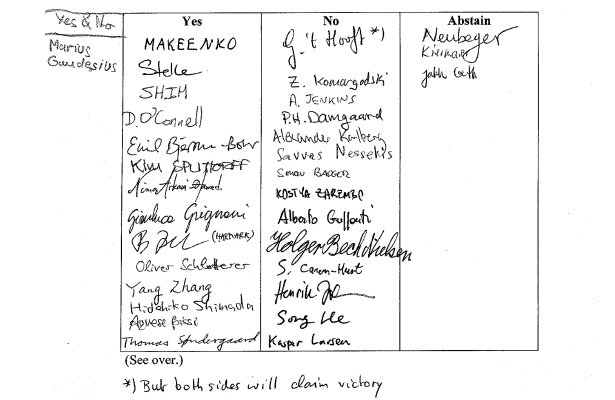 Yes & No
Marius
Gaudesius
Yes
MAKEENKO
Stelle
SHIM
D. O'Connell
Emil Bjerrum-Bohr
KIM SPLITTORFF
Nima Arkani-Hamed
Gianluca Grignani
(HARVARD)
Oliver Schlotterer
Yang Zhang
Hidehiko Shimada
Agnese Bissi
Thomas Søndergaard
No
G. 't Hooft *)
Z. Komargodski
A. JENKINS
P.H. Damgaard
Alexander Karlberg
Savvas Nesseris
Simon BADGER
KOSTYA ZAREMBO
Alberto Guffanti
Holger Bech Nielsen
S. Caron-Huot
Henrik
Song He
Kasper Larsen
Abstain
Neuberger
(See over.)
*) But both sides will claim victory